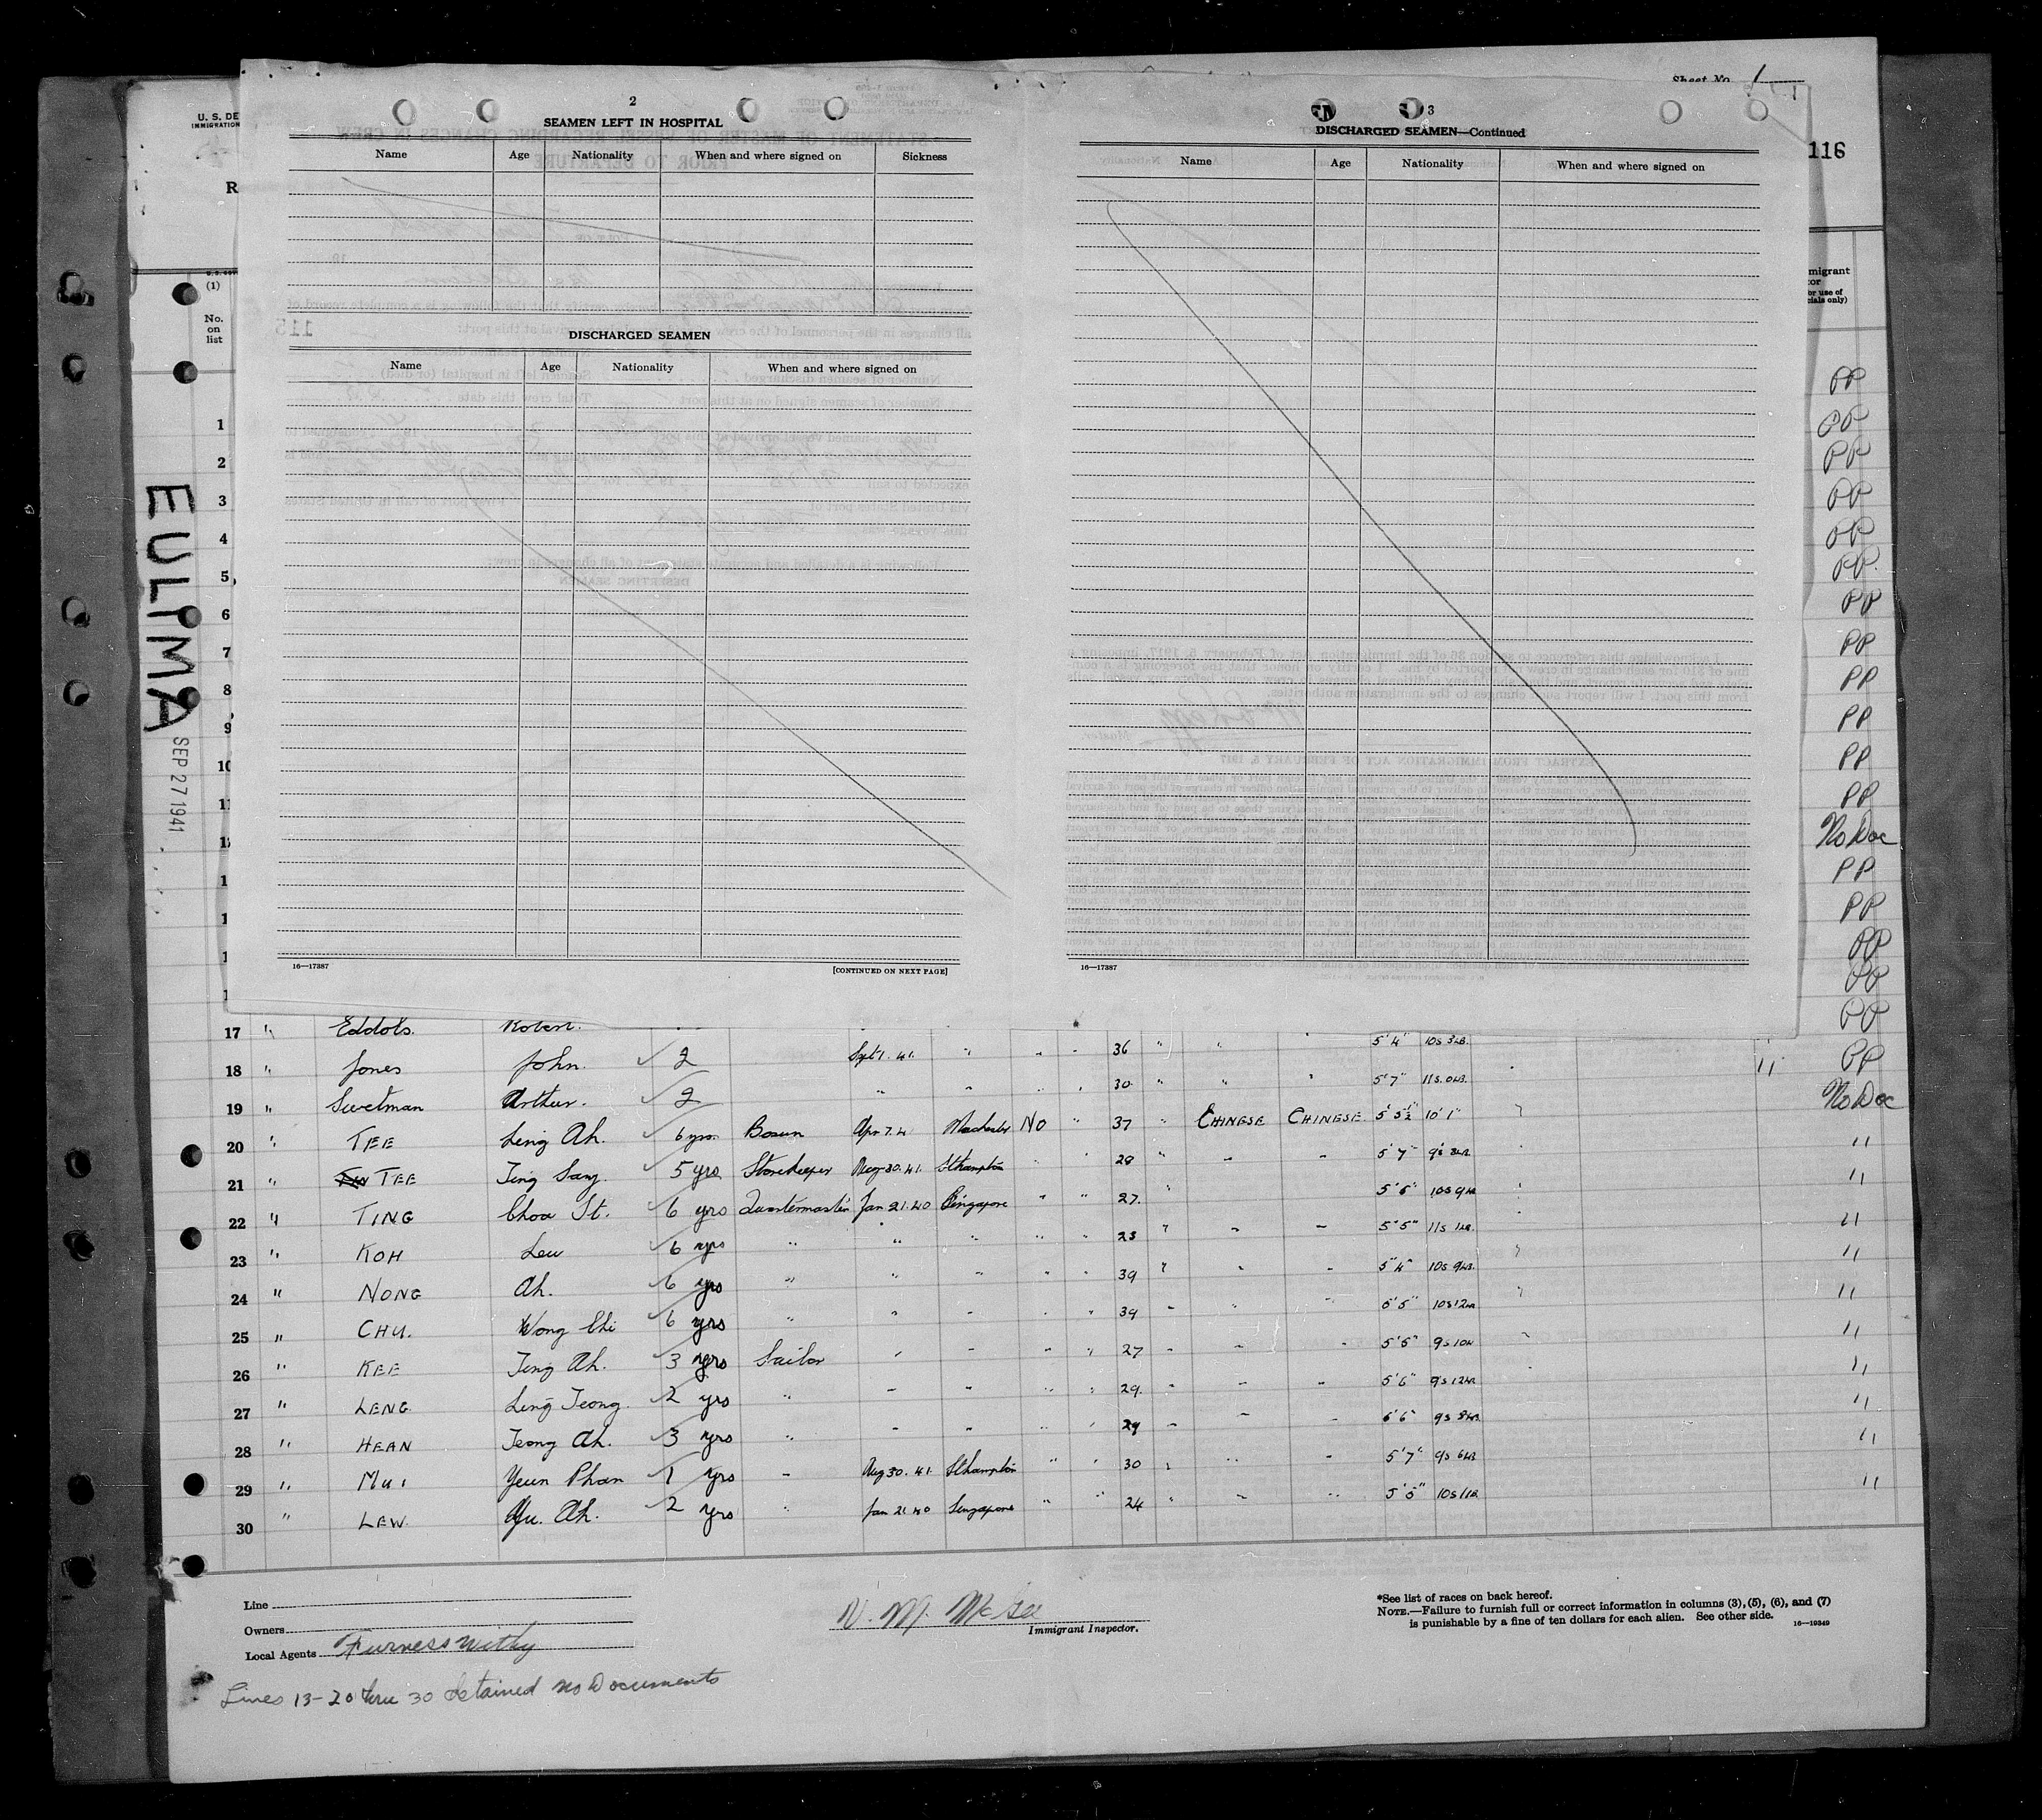 Sheet No. 1
U. S. DE
IMMIGRATION
R
116
2
SEAMEN LEFT IN HOSPITAL
Name Age Nationality When and where signed on Sickness
DISCHARGED SEAMEN
Name Age Nationality When and where signed on
16—17387
[CONTINUED ON NEXT PAGE]
3
DISCHARGED SEAMEN—Continued
Name Age Nationality When and where signed on
16—17387
(1)
No. on list
migrant
or use of
cials only)
EULIMA
SEP 27 1941
1 PP
2 PP
3 PP
4 PP
5 PP
6 PP
7 PP
8 PP
9 PP
10 PP
PP
PP
No Doc
PP
PP
PP
PP
17 " Eddols. Robert. PP
18 " Jones John. ✓ 2 Sept 1. 41. " " " 36 " " " 5'4" 10s 3LB. PP
19 " Swetman Arthur. ✓ 2 " " " " 30 " " " 5'7" 11s. 0LB. " No Doc
20 " TEE Leng Ah. ✓ 6 yrs. Bosun Apr 7. 41 Manchester NO " 37 " CHINESE CHINESE. 5'5½" 10'1" " "
21 " TEE Ting Sang. ✓ 5 yrs Storekeeper Aug 30. 41. Sthampton " " 28 " " 5'7" 9s 8LB. " "
22 " TING Choa St. ✓ 6 yrs Quartermaster Jan 21. 40 Singapore " " 27. " 5'6" 10s 9LB " "
23 " KOH Lew ✓ 6 yrs " " " " " 23 " " " 5'5" 11s 1LB. " "
24 " NONG Ah. ✓ 6 yrs " " " " " 39 " " " 5'4" 10s 9LB. " "
25 " CHU. Wong Chi ✓ 6 yrs " " " " " 39 " " " 5'5" 10s 12LB " "
26 " KEE Teng Ah. ✓ 3 yrs Sailor " " " " 27 " " " 5'5" 9s 10LB " "
27 " LENG. Leng Teong. ✓ 2 yrs " " " " " 29. " " " 5'6" 9s 12LB " "
28 " HEAN Teong Ah. ✓ 3 yrs " " " " " 29 " " " 5'6" 9s 8LB. "
29 " MUI Yeun Phan ✓ 1 yrs " Aug 30. 41. Sthampton " " 30 " " " 5'7" 9s 6LB "
30 " LEW. Yu. Ah. ✓ 2 yrs " Jan 21. 40 Singapore " " 24 " " " 5'5" 10s 11LB "
Line
Owners
Local Agents Furness Withy
N. M. McGee
Immigrant Inspector.
*See list of races on back hereof.
NOTE.—Failure to furnish full or correct information in columns (3), (5), (6), and (7)
is punishable by a fine of ten dollars for each alien. See other side.
16—19349
Lines 13-20 thru 30 detained no Documents